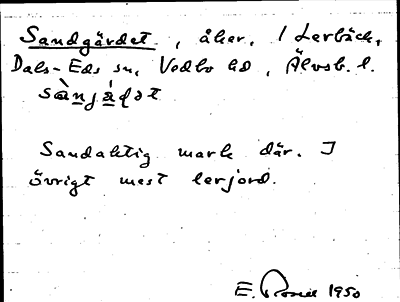 Sandgärdet, åker, i Lerbäck,
Dals-Eds sn, Vedbo hd, Älvsb. l.
Sandaktig mark där. I
övrigt mest lerjord.
E. 1950